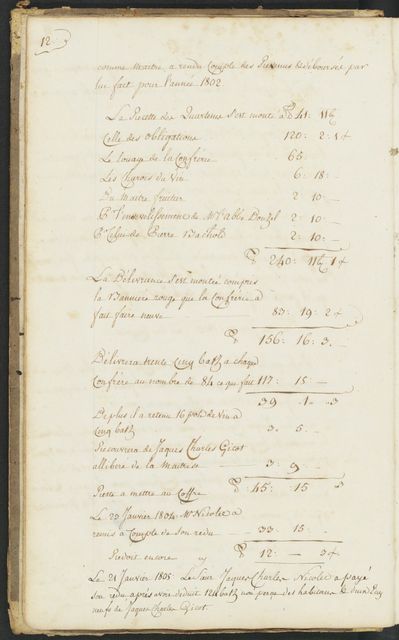 12
comme Maitre a rendu Compte des Revenus & déboursés par
lui fait pour l'année 1802
La Recette des Quarteme s'est monté a 41: 11
Celle des obligations 120: 2: 1
Le louage de la Confrérie 65
Les Thyrois du Vin 6: 18: –
Du Maitre fruitier 2: 10: –
Pr l'ensevelissement de Mr l'abbé Donzel 2: 10: –
Pr Celui de Pierre 2: 10: –
240: 11 1
La Délivrance s'est montée compris
la Banniere rouge que la Confrerie a
fait faire neuve 83: 19: 2
156: 16: 3
Délivrera trente Cinq batz a chaque
Confrère au nombre de 84 ce que fait 117: 15 –
39 1 3
De plus il a retenu 16 pots de vin a
Cinq batz 3. 5. –
Recouvrera de Jaques Charles Gicot
allibere de la Maitrise 3. 9 –
Reste a mettre au Coffre 45: 15 3
Le 23 Janvier 1804 Mr Nicolet a
remis a Compte de son redu 33: 15 –
Redoit encore 12: – 3
Le 21 Janvier 1805 Le Sieur Jaques Charles Nicolet a payé
son redu après avoir déduit 124 batz
neufs de Jaques Charles Gicot.